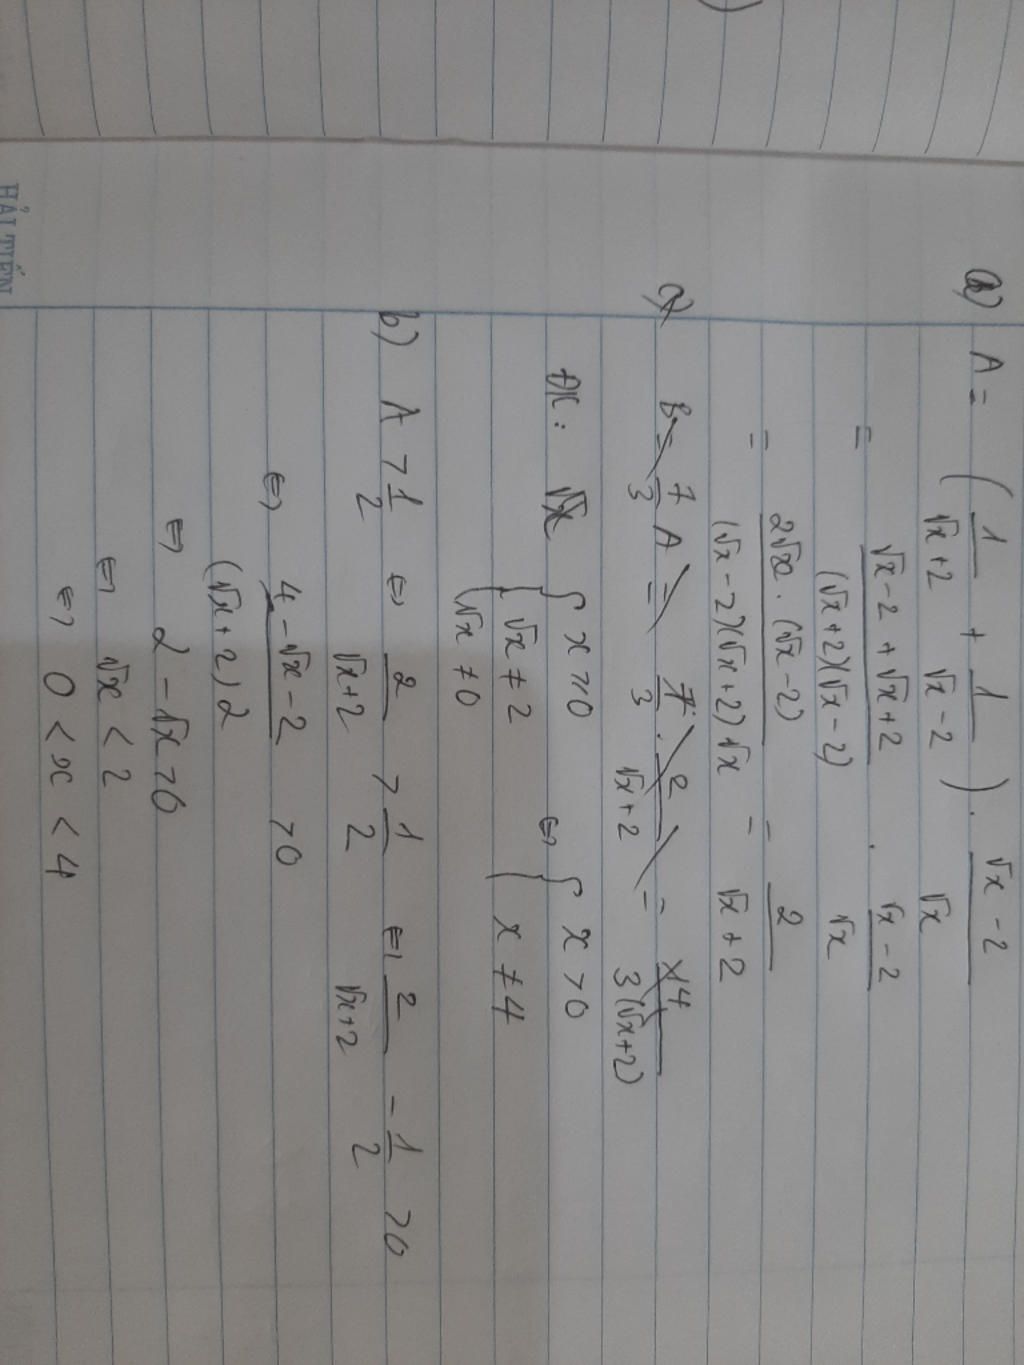 a) A = ( 1/(√x+2) + 1/(√x-2) ) . (√x-2)/√x
= (√x-2+√x+2)/((√x+2)(√x-2)) . (√x-2)/√x
= (2√x . (√x-2))/((√x-2)(√x+2)√x) = 2/(√x+2)
c) B = 7/3 A = 7/3 . 2/(√x+2) = 14/(3(√x+2))
ĐK: √x { x ≥ 0 ⇔ { x > 0
√x ≠ 2 x ≠ 4
√x ≠ 0
b) A > 1/2 ⇔ 2/(√x+2) > 1/2 ⇔ 2/(√x+2) - 1/2 > 0
⇔ (4-√x-2)/((√x+2)2) > 0
⇔ 2-√x > 0
⇔ √x < 2
⇔ 0 < x < 4
HẢI TIẾN